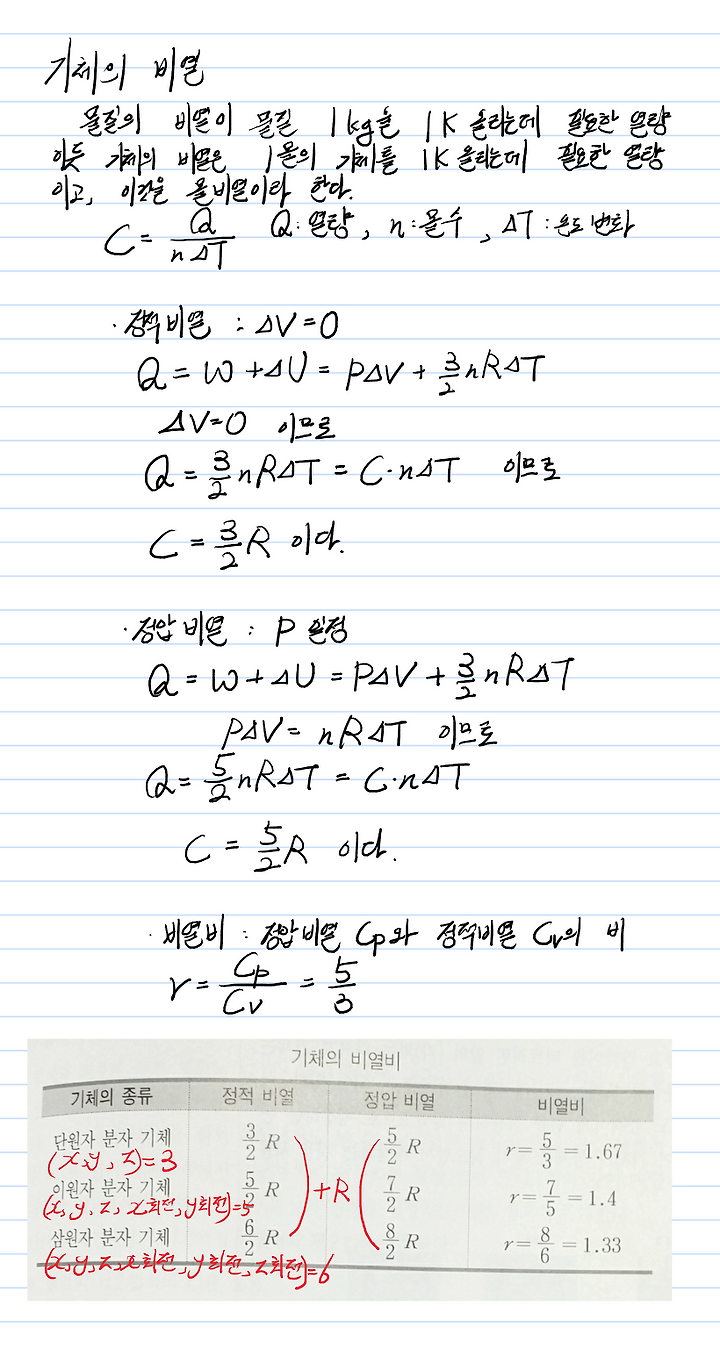 기체의 비열
물질의 비열이 물질 1kg을 1K 올리는데 필요한 열량
이듯 기체의 비열은 1몰의 기체를 1K 올리는데 필요한 열량
이고, 이것을 몰비열이라 한다.
C = Q / nΔT Q: 열량, n: 몰수, ΔT: 온도 변화
· 정적비열 : ΔV=0
Q = W + ΔU = PΔV + 3/2 nRΔT
ΔV=0 이므로
Q = 3/2 nRΔT = C·nΔT 이므로
C = 3/2 R 이다.
· 정압비열 : P 일정
Q = W + ΔU = PΔV + 3/2 nRΔT
PΔV = nRΔT 이므로
Q = 5/2 nRΔT = C·nΔT
C = 5/2 R 이다.
· 비열비 : 정압비열 Cp와 정적비열 Cv의 비
r = Cp/Cv = 5/3
기체의 비열비
기체의 종류 정적 비열 정압 비열 비열비
단원자 분자 기체 3/2 R 5/2 R r = 5/3 = 1.67
(x,y,z)=3
이원자 분자 기체 5/2 R +R 7/2 R r = 7/5 = 1.4
(x,y,z,x회전,y회전)=5
삼원자 분자 기체 6/2 R 8/2 R r = 8/6 = 1.33
(x,y,z,x회전,y회전,z회전)=6